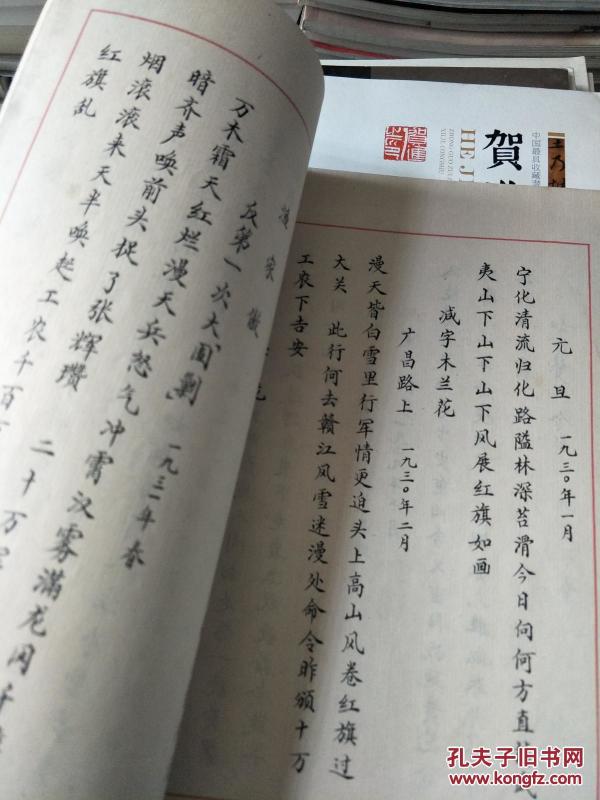 元旦 一九三〇年一月
宁化清流归化路隘林深苔滑今日向何方直指武
夷山下山下山下风展红旗如画
减字木兰花
广昌路上 一九三〇年二月
漫天皆白雪里行军情更迫头上高山风卷红旗过
大关 此行何去赣江风雪迷漫处命令昨颁十万
工农下吉安
渔家傲
反第一次大"围剿" 一九三一年春
万木霜天红烂漫天兵怒气冲霄汉雾满龙冈千嶂
暗齐声唤前头捉了张辉瓒 二十万军
烟滚滚来天半唤起工农千百
红旗乱
賀
HE JI
中国最具收藏
孔夫子旧书网
www.kongfz.com